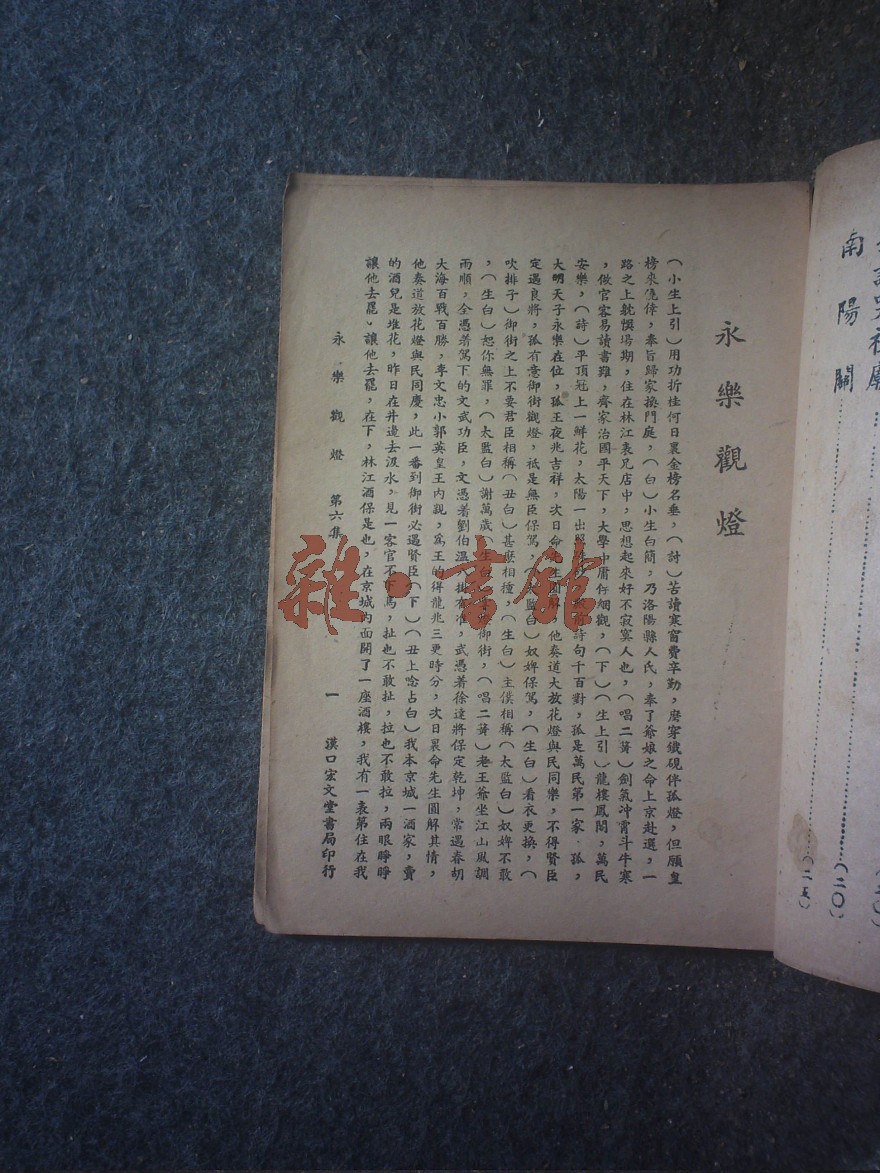 南陽關……(二〇)
(二五)
永樂觀燈
(小生上引)用功折桂何日裏金榜名垂,(詩)苦讀寒窗費辛勤,磨穿鐵硯伴孤燈,但願皇
榜來僥倖,奉旨歸家換門庭,(白)小生白簡,乃洛陽縣人氏,奉了爺娘之命上京赴選,一
路之上躭悞塲期,住在林江表兄店中,思想起來好不寂寞人也,(唱二簧)劍氣冲霄斗牛寒
,做官容易讀書難,齊家治國平天下,大學中庸仔細觀,(下)(生上引)龍樓鳳閣,萬民
安樂,(詩)平頂冠上一鮮花,太陽一出照 詩句千百對,孤是萬民第一家,孤,
大明天子永樂在位,孤王夜兆吉祥,次日命先生圓解,他奏道大放花燈與民同樂,不得賢臣
定遇良將,孤有意御街觀燈,祗是無臣保駕,(太監白)奴婢保駕,(生白)看衣更換,(
吹排子)御街之上不要君臣相稱(丑白)甚麽相種,(生白)主僕相稱(太監白)奴婢不敢
,(生白)恕你無罪,(太監白)謝萬歲(生白) 御街,(唱二簧)老王爺坐江山風調
雨順,全憑着駕下的文武功臣,文憑着劉伯溫八掛有准,武憑着徐達將保定乾坤,常遇春胡
大海百戰百勝,李文忠小郭英皇王內親,爲王的得龍兆三更時分,次日裏命先生圓解其情,
他奏道放花燈與民同慶,此一番到御街必遇賢臣(下)(丑上唸占白)我本京城一酒家,賣
的酒兒是堆花,昨日在井邊去汲水,見一客官不下馬,扯也不敢扯,拉也不敢拉,兩眼睜睜
讓他去罷,讓他去罷,在下,林江酒保是也,在京城內面開了一座酒樓,我有一表弟住在我
永樂觀燈 第六集 一 漢口宋文堂書局印行
雜·書館